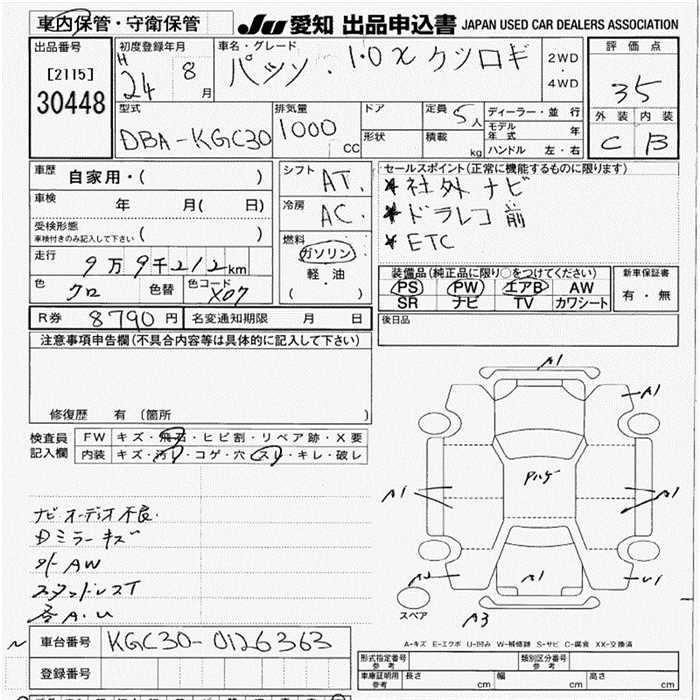 車内保管・守衛保管
JU 愛知 出品申込書 JAPAN USED CAR DEALERS ASSOCIATION
出品番号
[2115]
30448
初度登録年月
H 24 8月
車名・グレード
パッソ・1.0X クツロギ
2WD
・
4WD
評価点
35
外装 内装
C B
型式
DBA-KGC30
排気量
1000 CC
ドア
形状
定員 5人
積載 kg
ディーラー・並行
モデル年式 年
ハンドル 左・右
車歴 自家用・( )
車検 年 月( 日)
受検形態
車検付きのみ記入して下さい ( )
走行 9万9千212km
色 クロ 色替 色コード X07
シフト AT
冷房 AC
燃料
ガソリン
軽・油
( )
セールスポイント(正常に機能するものに限ります)
* 社外ナビ
* ドラレコ 前
* ETC
装備品(純正品に限り○をつけてください)
PS PW エアB AW
SR ナビ TV カワシート
新車保証書
有・無
R券 8790円 名変通知期限 月 日
後日品
注意事項申告欄(不具合内容等は具体的に記入して下さい)
修復歴 有 (箇所 )
検査員
記入欄
FW キズ・飛石・ヒビ割・リペア跡・X要
内装 キズ・汚れ・コゲ・穴・スレ・キレ・破レ
ナビオーディオ不良
Dミラーキズ
外AW
スタッドレスT
各A.U
A1
A1
Pハゲ
A1
A1
A2
A1
U1
スペア
A3
A-キズ E-エクボ U-凹み W-補修跡 S-サビ C-腐食 XX-交換済
車台番号 KGC30-0126363
登録番号
形式指定番号 参考
類別区分番号 参考
車庫証明用 参考 長さ cm 幅 cm 高さ cm